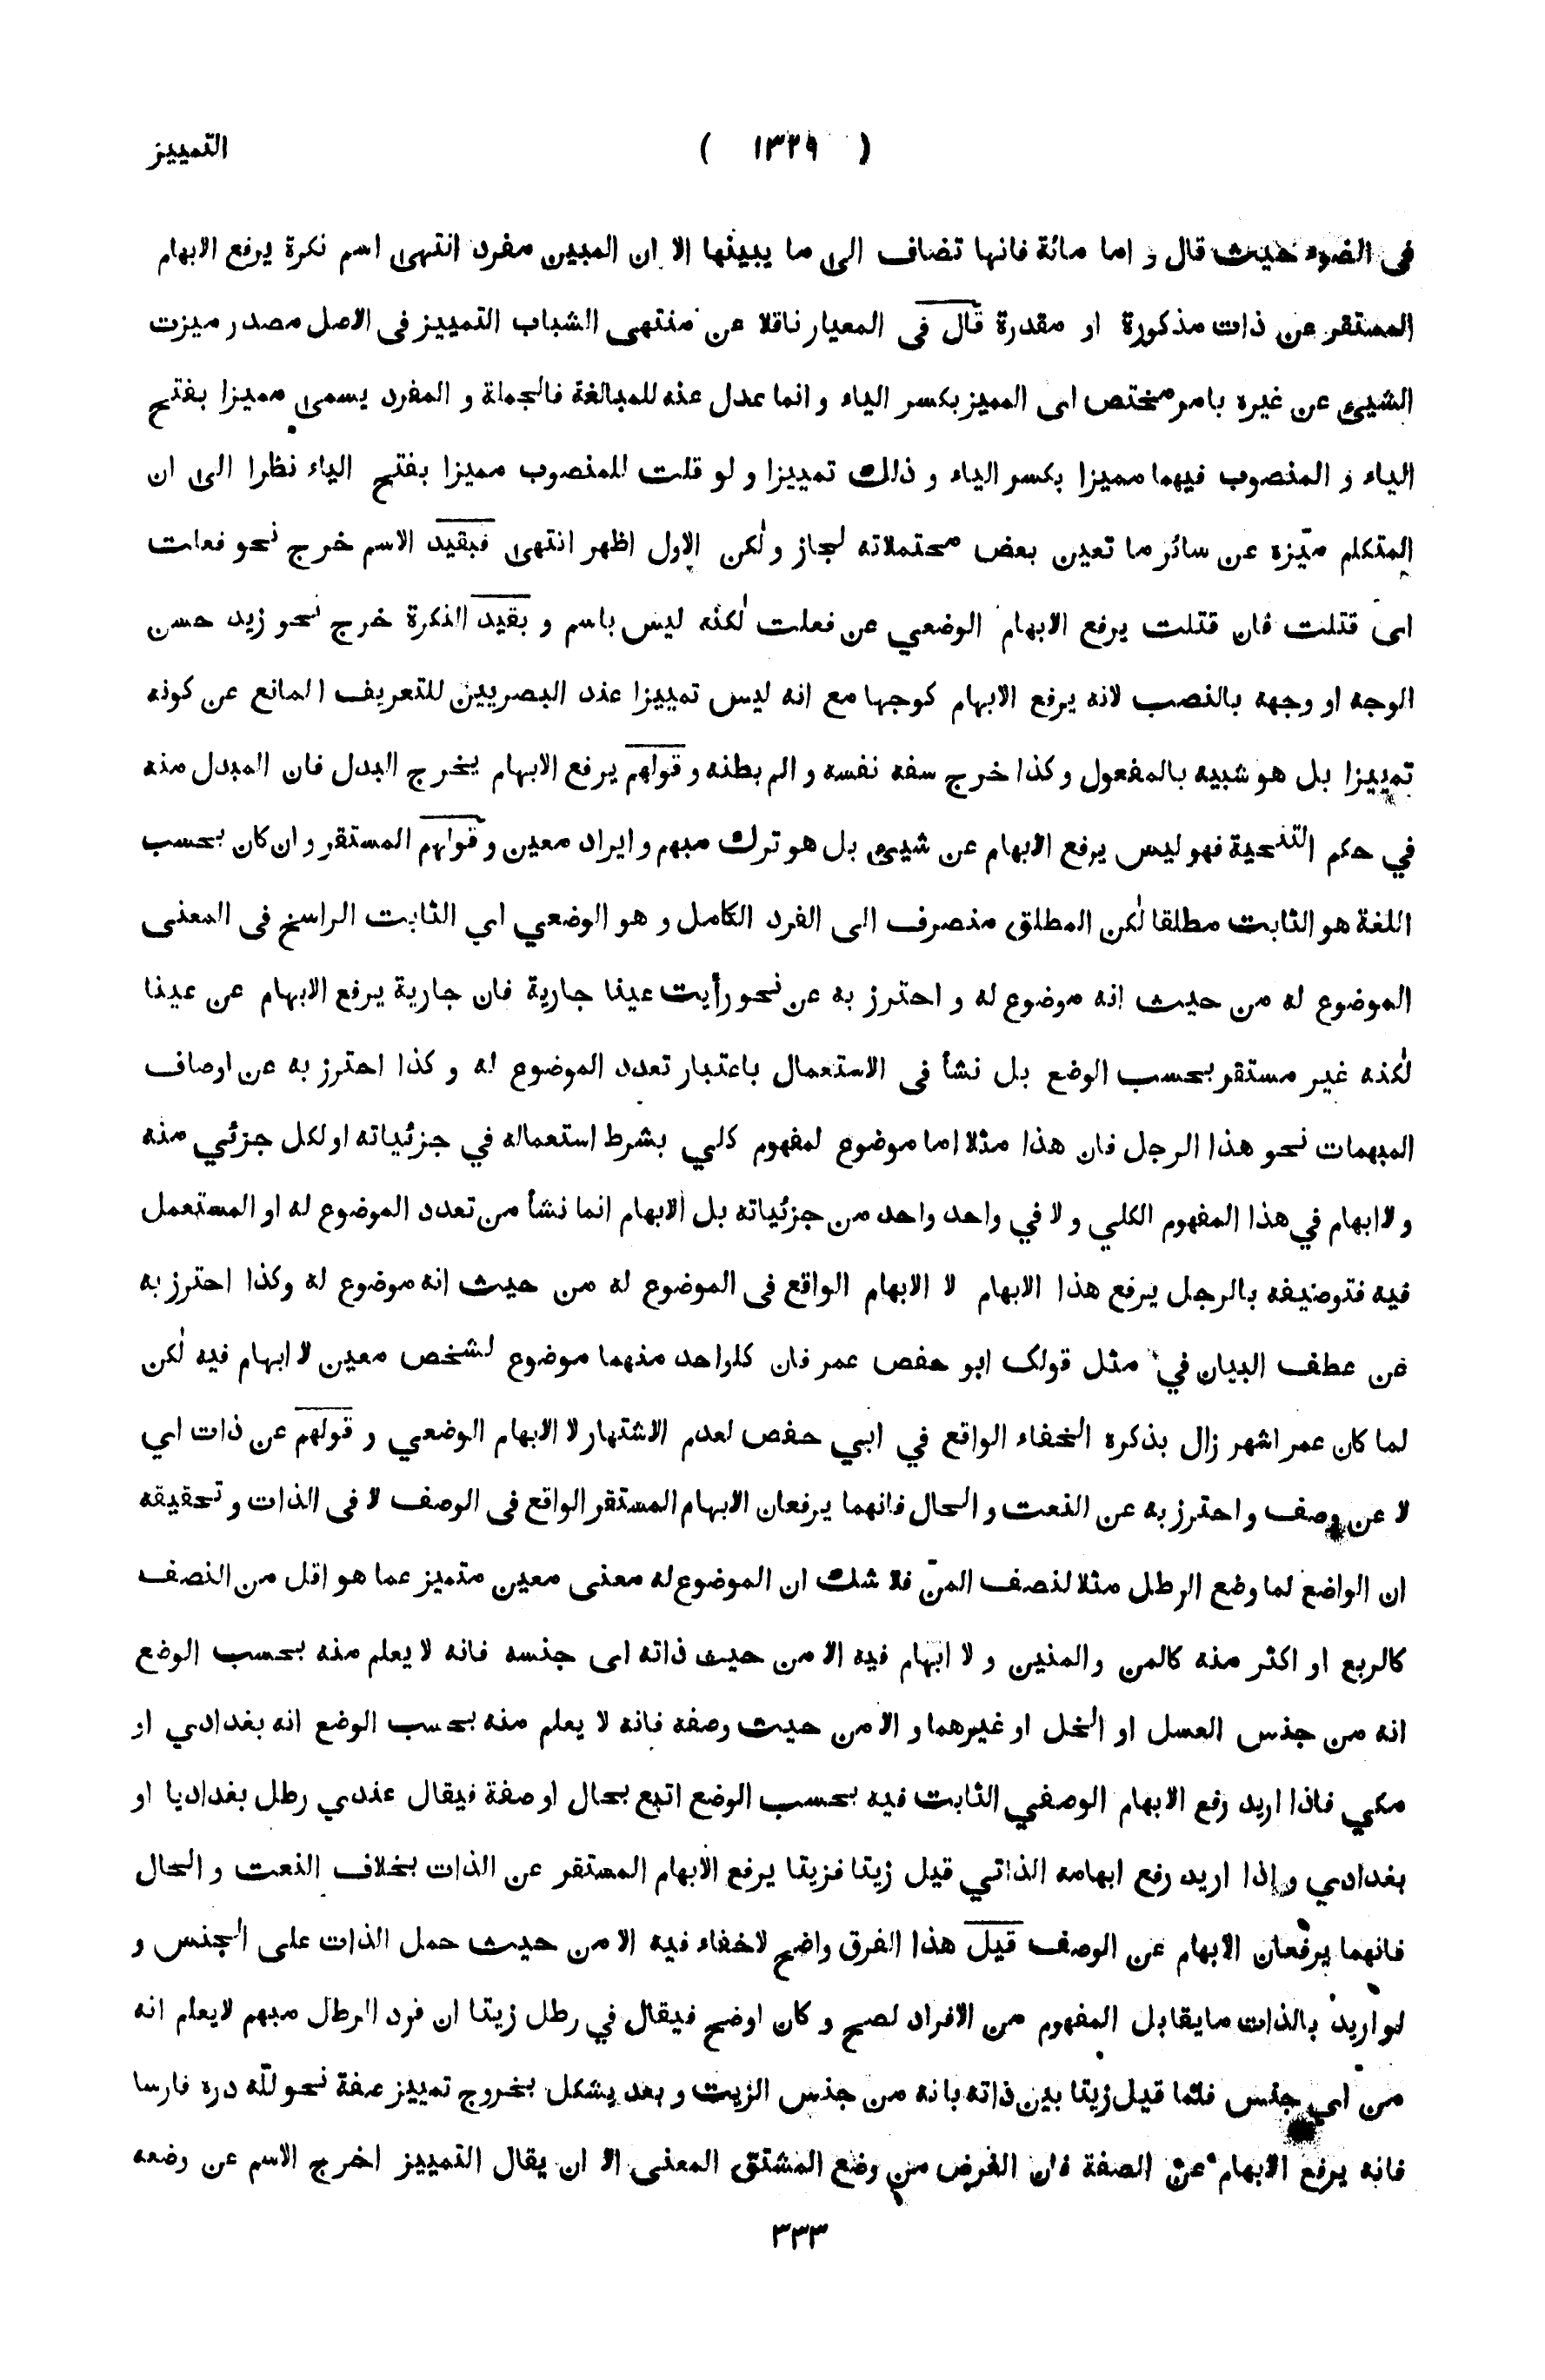 التمييز
( ١٣٢٩ )
فى الضوء حيث قال و اما مائة فانها تضاف الى ما يبينها الا ان المبين مفرد انتهى اسم نكرة يرفع الابهام
المستقر عن ذات مذكورة او مقدرة قال فى المعيار ناقلا عن منتهى الشباب التمييز فى الاصل مصدر ميزت
الشيئ عن غيره بامر مختص اى المميز بكسر الياء و انما عدل عنه للمبالغة فالجملة و المفرد يسمى مميزا بفتح
الياء و المنصوب فيهما مميزا بكسر الياء و ذلك تمييزا و لو قلت للمنصوب مميزا بفتح الياء نظرا الى ان
المتكلم ميّزه عن سائر ما تعين بعض محتملاته لجاز و لٰكن الاول اظهر انتهى فبقيد الاسم خرج نحو فعلت
اى قتلت فان قتلت يرفع الابهام الوضعي عن فعلت لٰكنه ليس باسم و بقيد النكرة خرج نحو زيد حسن
الوجه او وجهه بالنصب لانه يرفع الابهام كوجها مع انه ليس تمييزا عند البصريين للتعريف المانع عن كونه
تمييزا بل هو شبيه بالمفعول و كذا خرج سفه نفسه و الم بطنه و قولهم يرفع الابهام يخرج البدل فان المبدل منه
في حكم التنحية فهو ليس يرفع الابهام عن شيئ بل هو ترك مبهم و ايراد معين و قولهم المستقر و ان كان بحسب
اللغة هو الثابت مطلقا لٰكن المطلق منصرف الى الفرد الكامل و هو الوضعي اي الثابت الراسخ فى المعنى
الموضوع له من حيث انه موضوع له و احترز به عن نحو رأيت عينا جارية فان جارية يرفع الابهام عن عينا
لٰكنه غير مستقر بحسب الوضع بل نشأ فى الاستعمال باعتبار تعدد الموضوع له و كذا احترز به عن اوصاف
المبهمات نحو هذا الرجل فان هذا مثلا اما موضوع لمفهوم كلي بشرط استعماله في جزئياته او لكل جزئي منه
و لا ابهام في هذا المفهوم الكلي و لا في واحد واحد من جزئياته بل الابهام انما نشأ من تعدد الموضوع له او المستعمل
فيه فتوصيفه بالرجل يرفع هذا الابهام لا الابهام الواقع فى الموضوع له من حيث انه موضوع له وكذا احترز به
عن عطف البيان في مثل قولك ابو حفص عمر فان كلواحد منهما موضوع لشخص معين لا ابهام فيه لٰكن
لما كان عمر اشهر زال بذكره الخفاء الواقع في ابي حفص لعدم الاشتهار لا الابهام الوضعي و قولهم عن ذات اي
لا عن وصف و احترز به عن النعت و الحال فانهما يرفعان الابهام المستقر الواقع فى الوصف لا فى الذات و تحقيقه
ان الواضع لما وضع الرطل مثلا لنصف المنّ فلا شك ان الموضوع له معنى معين متميز عما هو اقل من النصف
كالربع او اكثر منه كالمن والمنين و لا ابهام فيه الا من حيث ذاته اى جنسه فانه لا يعلم منه بحسب الوضع
انه من جنس العسل او الخل او غيرهما و الا من حيث وصفه فانه لا يعلم منه بحسب الوضع انه بغدادي او
مكي فاذا اريد رفع الابهام الوصفي الثابت فيه بحسب الوضع اتبع بحال او صفة فيقال عندي رطل بغداديا او
بغدادي و اذا اريد رفع ابهامه الذاتي قيل زيتا فزيتا يرفع الابهام المستقر عن الذات بخلاف النعت و الحال
فانهما يرفعان الابهام عن الوصف قيل هذا الفرق واضح لاخفاء فيه الا من حيث حمل الذات على الجنس و
لو اريد بالذات مايقابل المفهوم من الافراد لصح و كان اوضح فيقال في رطل زيتا ان فرد الرطل مبهم لايعلم انه
من اي جنس فلمّا قيل زيتا بين ذاته بانه من جنس الزيت و بعد يشكل بخروج تمييز صفة نحو للّٰه دره فارسا
فانه يرفع الابهام عن الصفة فان الغرض من وضع المشتق المعنى الا ان يقال التمييز اخرج الاسم عن وضعه
٣٣٣